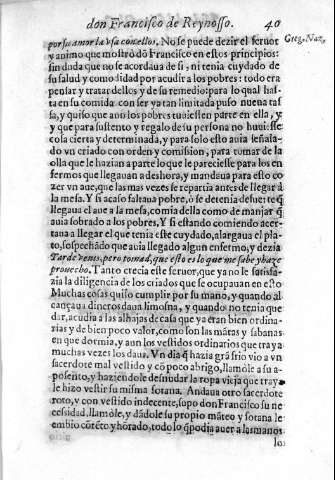 don Francisco de Reynosso. 40
por su amor la vsa con ellos. No se puede dezir el feruor
Greg. Naz.
y animo que mostrò dō Francisco en estos principios:
sin duda que no se acordaua de si, ni tenia cuydado de
su salud y comodidad por acudir a los pobres: todo era
pensar y tratar dellos y de su remedio: para lo qual has-
ta en su comida con ser ya tan limitada puso nueua tas
sa, y quiso que aun los pobres tuuiessen parte en ella, y
y que para sustento y regalo de su persona no huuiesse
cosa cierta y determinada, y para solo esto auia señala-
do vn criado con orden y comission, para tomar de la
olla que le hazian a parte lo que le pareciesse para los en
fermos que llegauan a deshora, y mandaua para esto co
zer vn aue, que las mas vezes se repartia antes de llegar á
la mesa. Y si acaso faltaua pobre, ò se detenia de suerte q̄
llegaua el aue a la mesa, comia della como de manjar q̄
auia sobrado a los pobres, Y si estando comiendo acer-
taua a llegar el que tenia este cuydado, alargaua el pla-
to, sospechādo que auia llegado algun enfermo, y dezia
Tarde venis, pero tomad, que esto es lo que me sabe y haze
prouecho. Tanto crecia este feruor, que ya no le satisfa-
zia la diligencia de los criados que se ocupauan en esto
Muchas cosas quiso cumplir por su mano, y quando al
cançaua dineros daua limosna, y quando no tenia que
dar, acudia a las alhajas de casa que ya eran bien ordina-
rias y de bien poco valor, como son las mātas y sabanas
en que dormia, y aun los vestidos ordinarios que traya
muchas vezes los daua. Vn dia q̄ hazia grā frio vio a vn
sacerdote mal vestido y cō poco abrigo, llamóle a su a-
posento, y haziendole desnudar la ropa vieja que traya
le hizo vestir su misma sotana. Andaua otro sacerdote
roto, y con vestido indecente, supo don Francisco su ne
cessidad, llamóle, y dādole su propio māteo y sotana le
embio cōtēto y hōrado, todo lo q̄ podia auer a las manos
lo